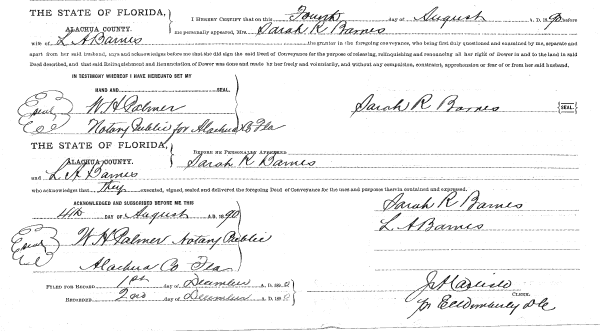 THE STATE OF FLORIDA,
ALACHUA COUNTY.
I HEREBY CERTIFY that on this Fourth day of August A. D. 1890 before
me personally appeared, Mrs. Sarah R Barnes
wife of L A Barnes the grantor in the foregoing conveyance, who being first duly questioned and examined by me, separate and
apart from her said husband, says and acknowledges before me that she did sign the said Deed of Conveyance for the purpose of releasing, relinquishing and renouncing all her right of Dower in and to the land in said
Deed described, and that said Relinquishment and Renunciation of Dower was done and made by her freely and voluntarily, and without any compulsion, constraint, apprehension or fear of or from her said husband.
IN TESTIMONY WHEREOF I HAVE HEREUNTO SET MY
HAND AND SEAL.
W H Palmer
Notary Public for Alachua Co Fla
Sarah R Barnes SEAL
THE STATE OF FLORIDA,
ALACHUA COUNTY.
BEFORE ME PERSONALLY APPEARED
Sarah R Barnes
and L A Barnes
who acknowledges that they executed, signed, sealed and delivered the foregoing Deed of Conveyance for the uses and purposes therein contained and expressed.
ACKNOWLEDGED AND SUBSCRIBED BEFORE ME
4th DAY OF August A. D. 1890
Sarah R Barnes
L A Barnes
W H Palmer Notary Public
Alachua Co Fla
FILED FOR RECORD 1st day of December A. D. 189
RECORDED 2nd day of December A. D. 189
CLERK.